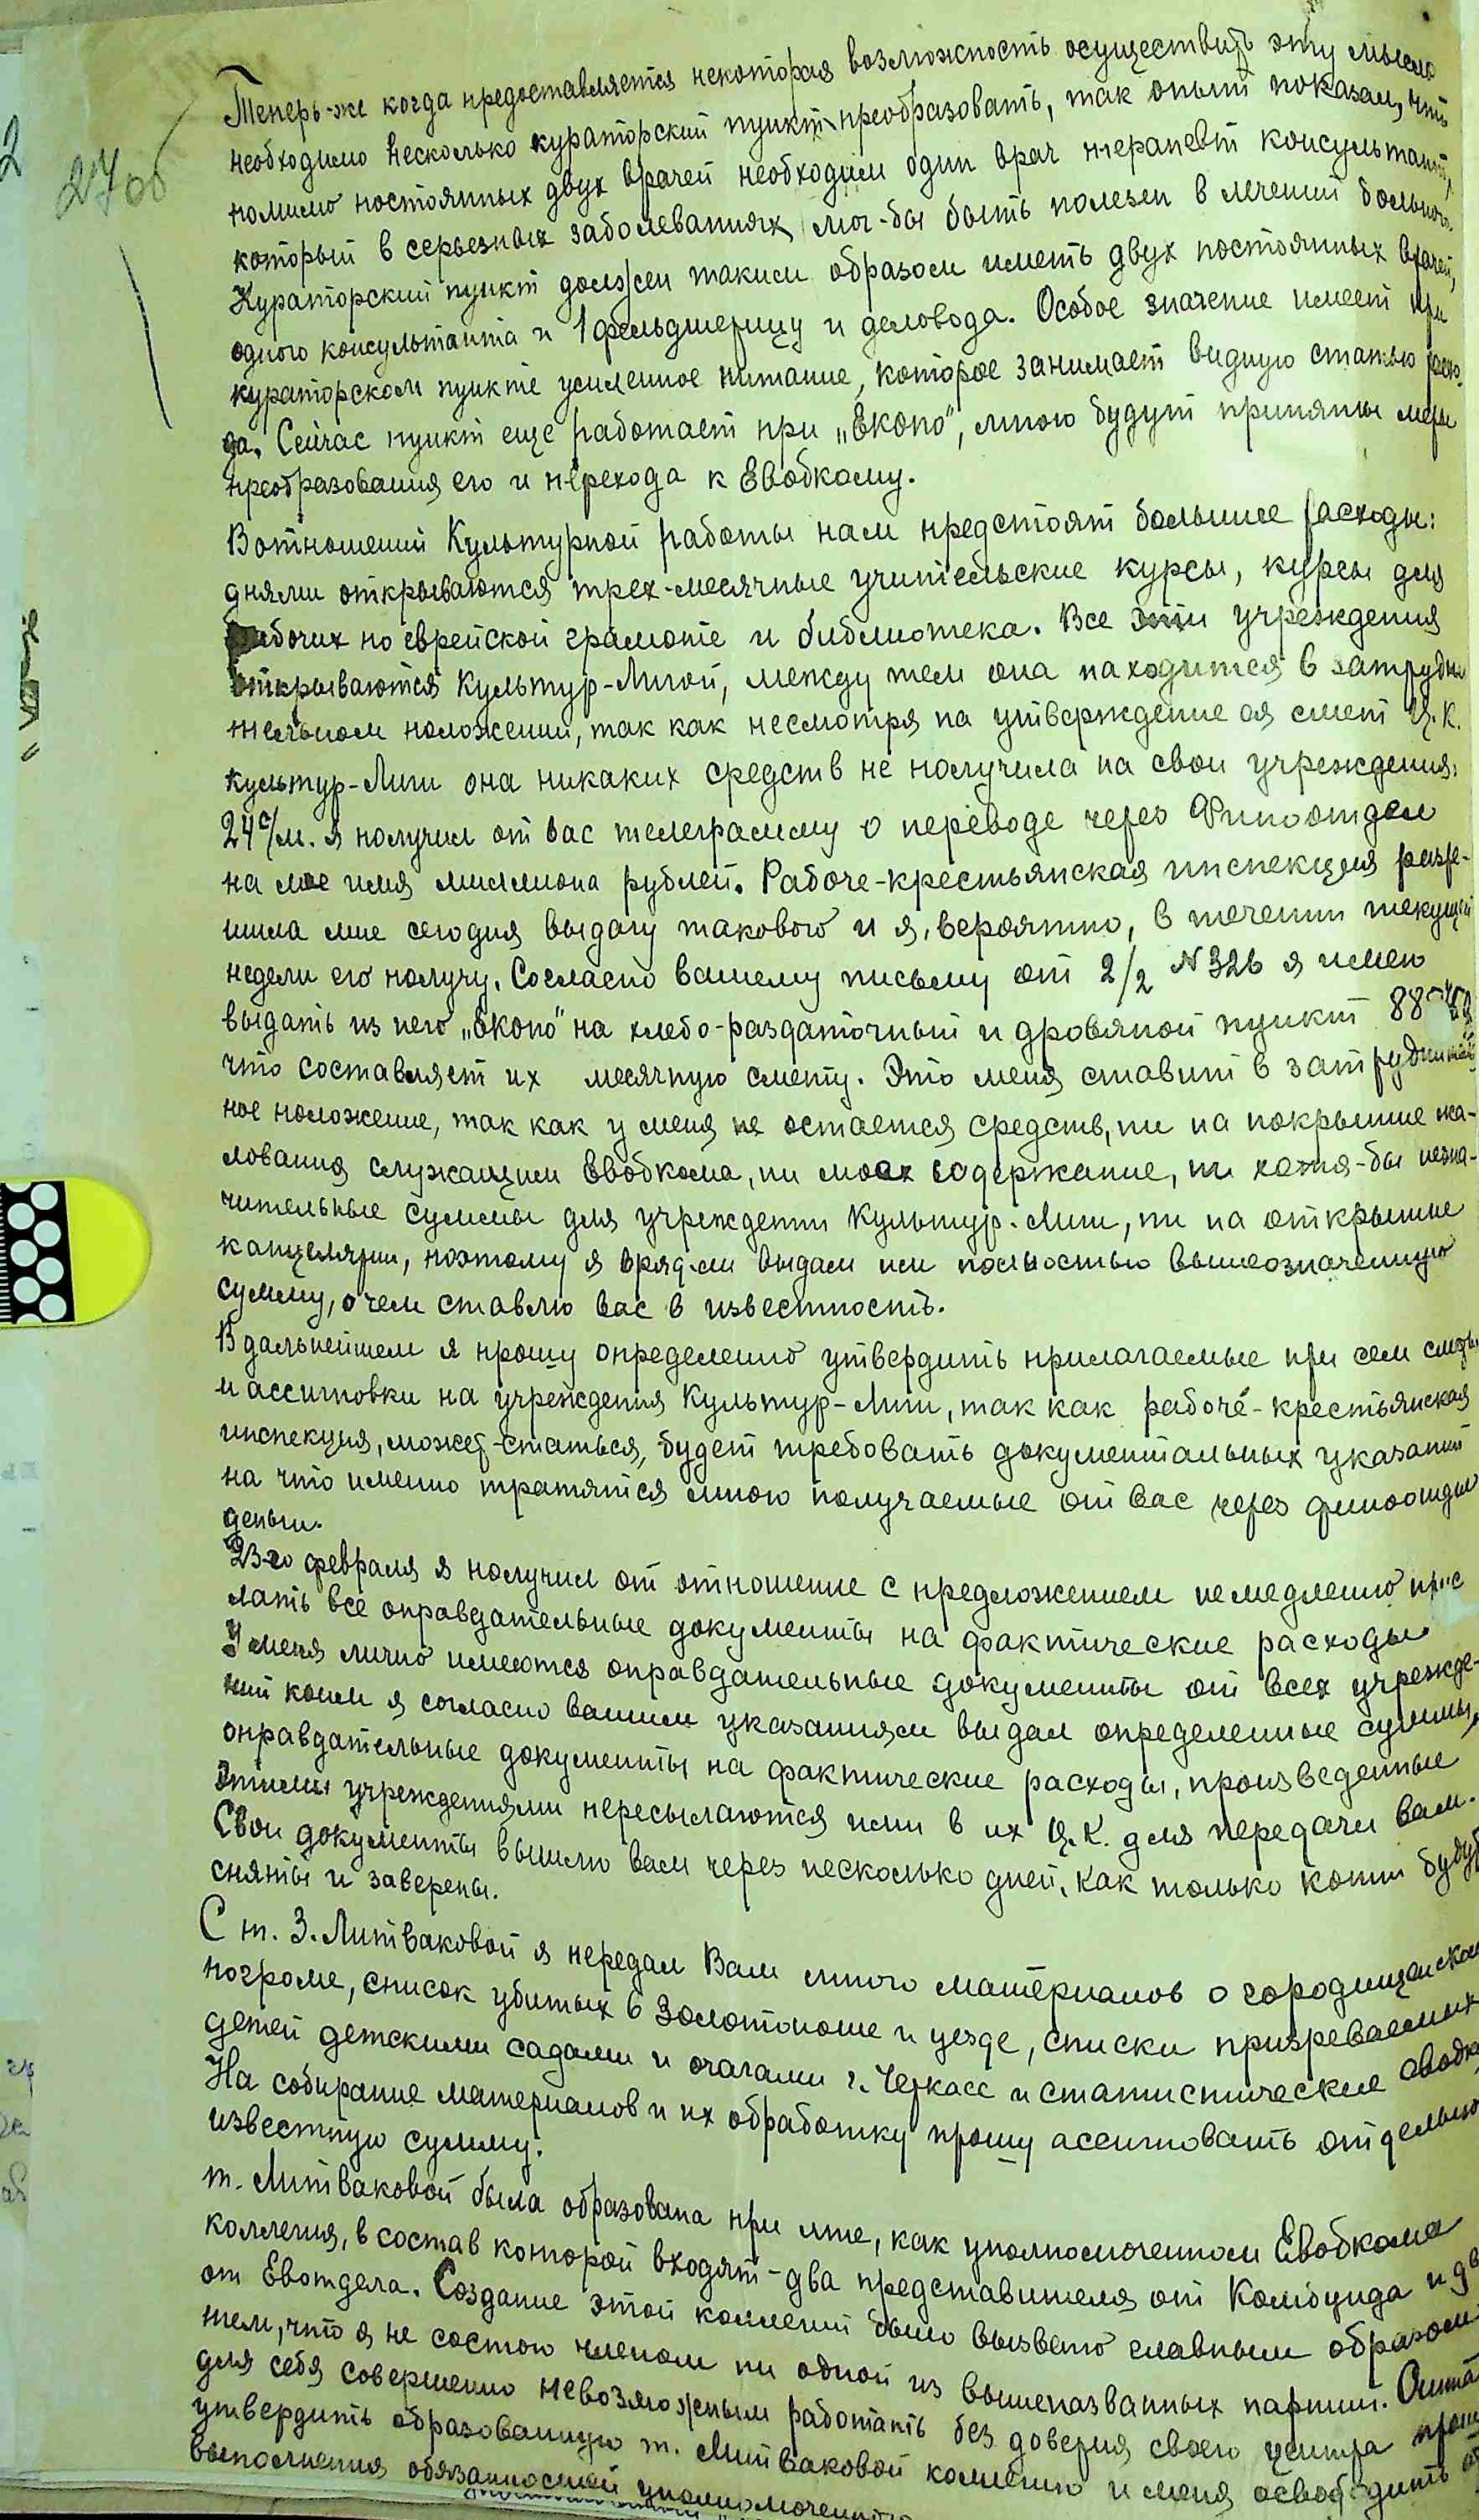 27об
Теперь-же когда предоставляется некоторая возможность осуществить эту мысль
необходимо несколько кураторский пункт преобразовать, так опыт показал, что
помимо постоянных двух врачей необходим один врач терапевт консультант,
который в серьезных заболеваниях мог-бы быть полезен в лечении больного.
Кураторский пункт должен таким образом иметь двух постоянных врачей,
одного консультанта и 1 фельдшерицу и деловода. Особое значение имеет при
кураторском пункте усиленное питание, которое занимает видную статью расхо-
да. Сейчас пункт еще работает при „Екопо", мною будут приняты меры
преобразования его и перехода к Евобкому.
В отношении Культурной работы нам предстоят большие расходы:
днями открываются трех-месячные учительские курсы, курсы для
рабочих по еврейской грамоте и библиотека. Все эти учреждения
открываются Культур-Лигой, между тем она находится в затрудни
тельном положении, так как несмотря на утверждение ея смет Ц.К.
Культур-Лиги она никаких средств не получила на свои учреждения.
24 с/м. я получил от вас телеграмму о переводе через Финотдел
на мое имя миллиона рублей. Рабоче-крестьянская инспекция разре-
шила мне сегодня выдачу такового и я, вероятно, в течении текущей
недели его получу. Согласно вашему письму от 2/2 N 326 я имею
выдать из него „Екопо" на хлебо-раздаточный и дровяной пункт 88
что составляет их месячную смету. Это меня ставит в затруднитель
ное положение, так как у меня не остается средств, ни на покрытие жа-
лования служащим Евобкома, ни моех содержание, ни хотя-бы незна-
чительные суммы для учреждений Культур-Лиги, ни на открытие
канцелярии, поэтому я вряд-ли выдам им полностью вышеозначенную
сумму, о чем ставлю вас в известность.
В дальнейшем я прошу определенно утвердить прилагаемые при сем сметы
и ассигновки на учреждения Культур-Лиги, так как рабоче-крестьянская
инспекция, может-статься, будет требовать документальных указаний
на что именно тратятся мною получаемые от вас через финотдел
деньги.
23-го февраля я получил от отношение с предложением немедленно прис
лать все оправдательные документы на фактические расходы
У меня лично имеются оправдательные документы от всех учрежде-
ний коим я согласно вашим указаниям выдал определенные суммы,
оправдательные документы на фактические расходы, произведенные
этими учреждениями пересылаются ими в их Ц.К. для передачи вам.
Свои документы вышлю вам через несколько дней, как только копии будут
сняты и заверены.
С т. З. Литваковой я передал Вам много материалов о городищенском
погроме, список убитых в Золотоноше и уезде, списки призреваемых
детей детскими садами и очагами г. Черкасс и статистические сводки
На собирание материалов и их обработку прошу ассигновать отдельно
известную сумму.
т. Литваковой была образована при мне, как уполномоченном Евобкома
коллегия, в состав которой входят - два представителя от Комбунда и два
от Евотдела. Создание этой коллегии было вызвано главным образом
тем, что я не состою членом ни одной из вышеназванных партий.
для себя совершенно невозможным работать без доверия своего центра прошу
утвердить образованную т. Литваковой коллегию и меня освободить от
выполнения обязанностей уполномоченного